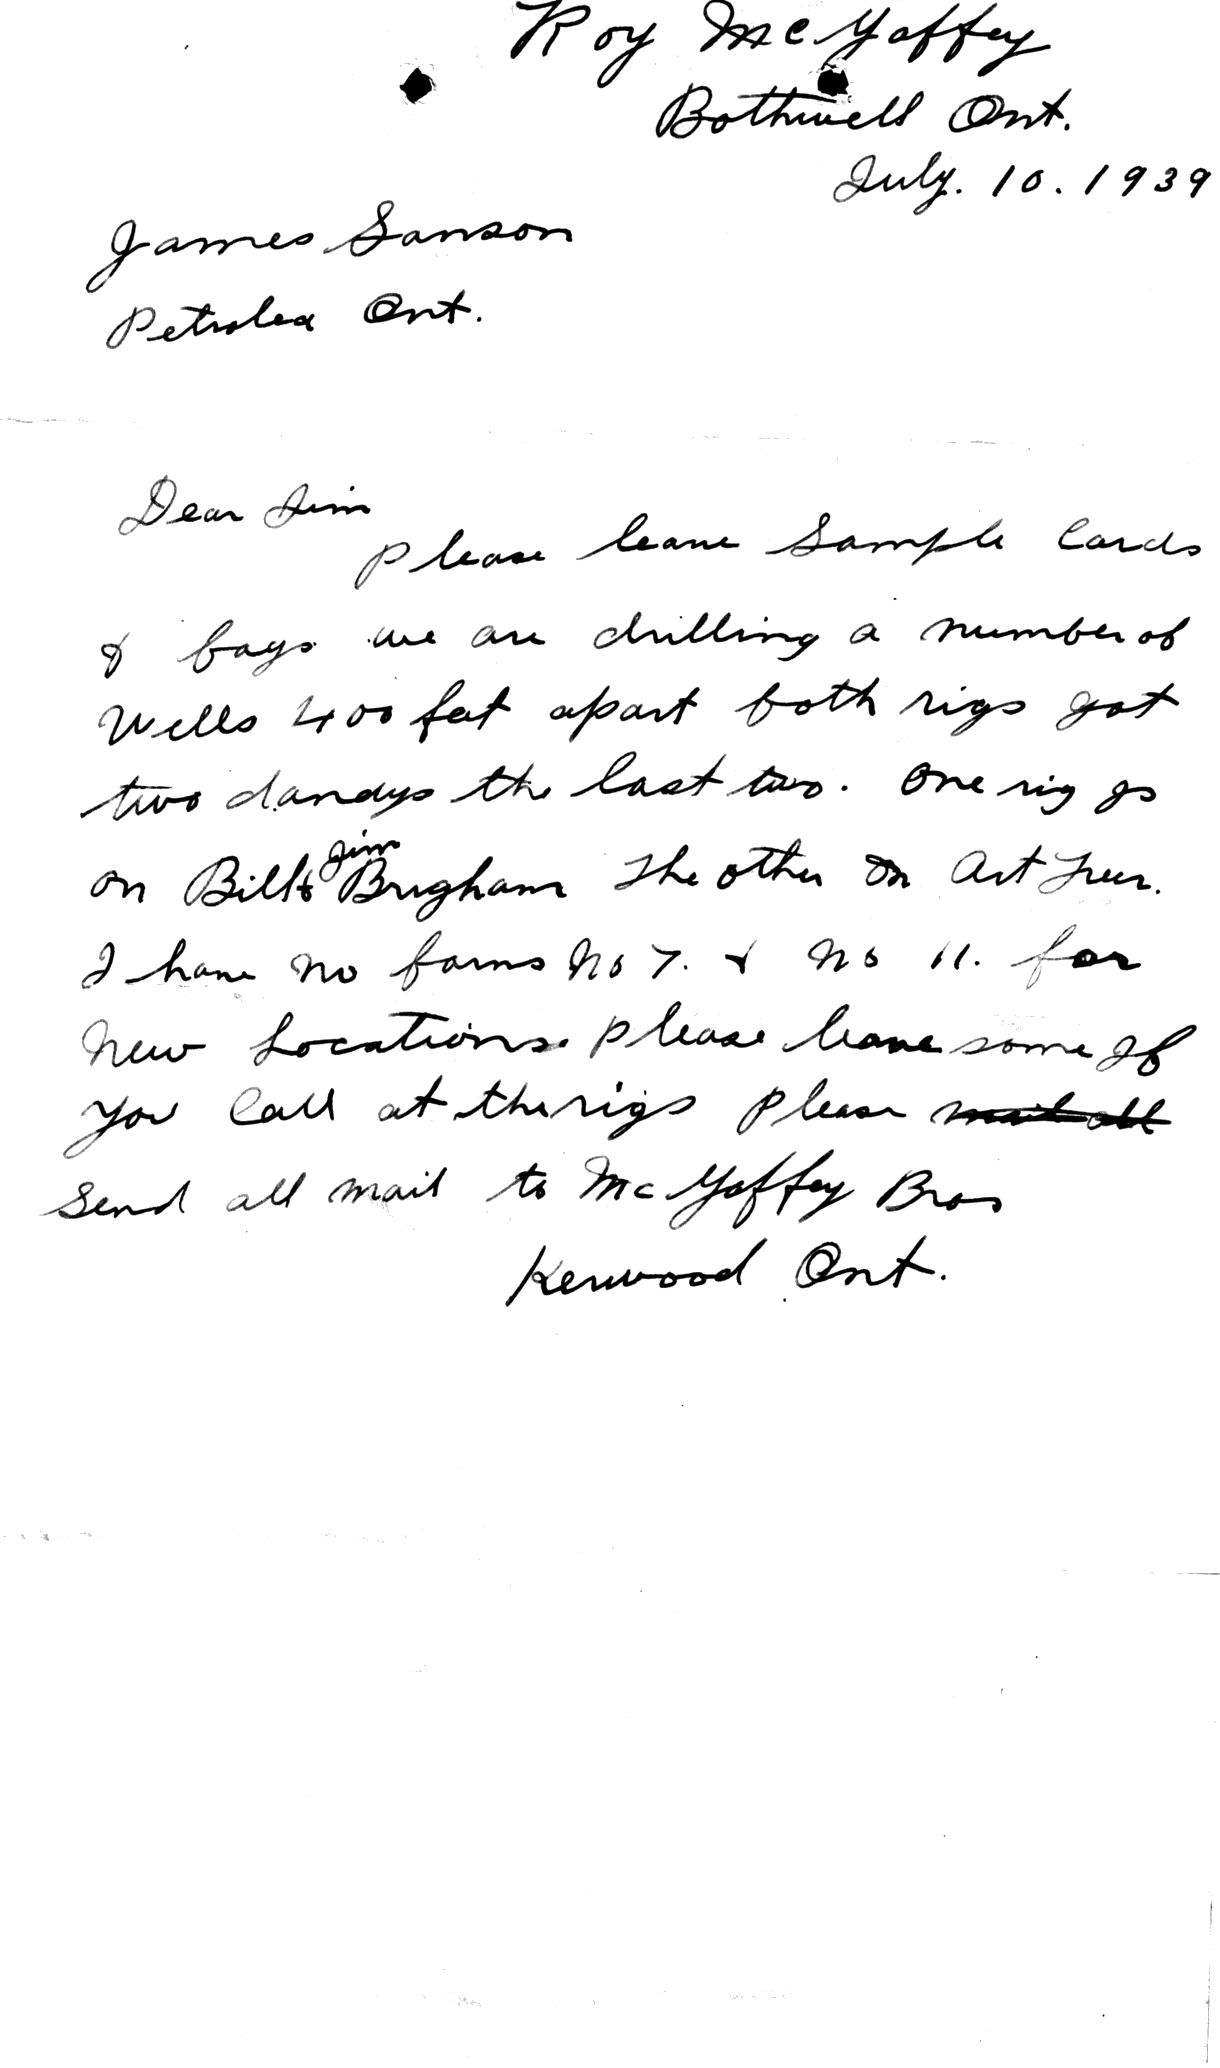 Roy McGaffey
Bothwell Ont.
July. 10. 1939
James Sanson
Petrolea Ont.
Dear Jim
Please leave Sample Cards
& bags we are drilling a number of
Wells 400 feet apart both rigs got
two dandys the last two. One rig is
on Bill & Jim Brigham The other on Art
I have no forms No 7. & No 11. for
New Locations. Please leave some If
you Call at the rigs Please mail all
Send all mail to McGaffey Bros
Kerwood Ont.